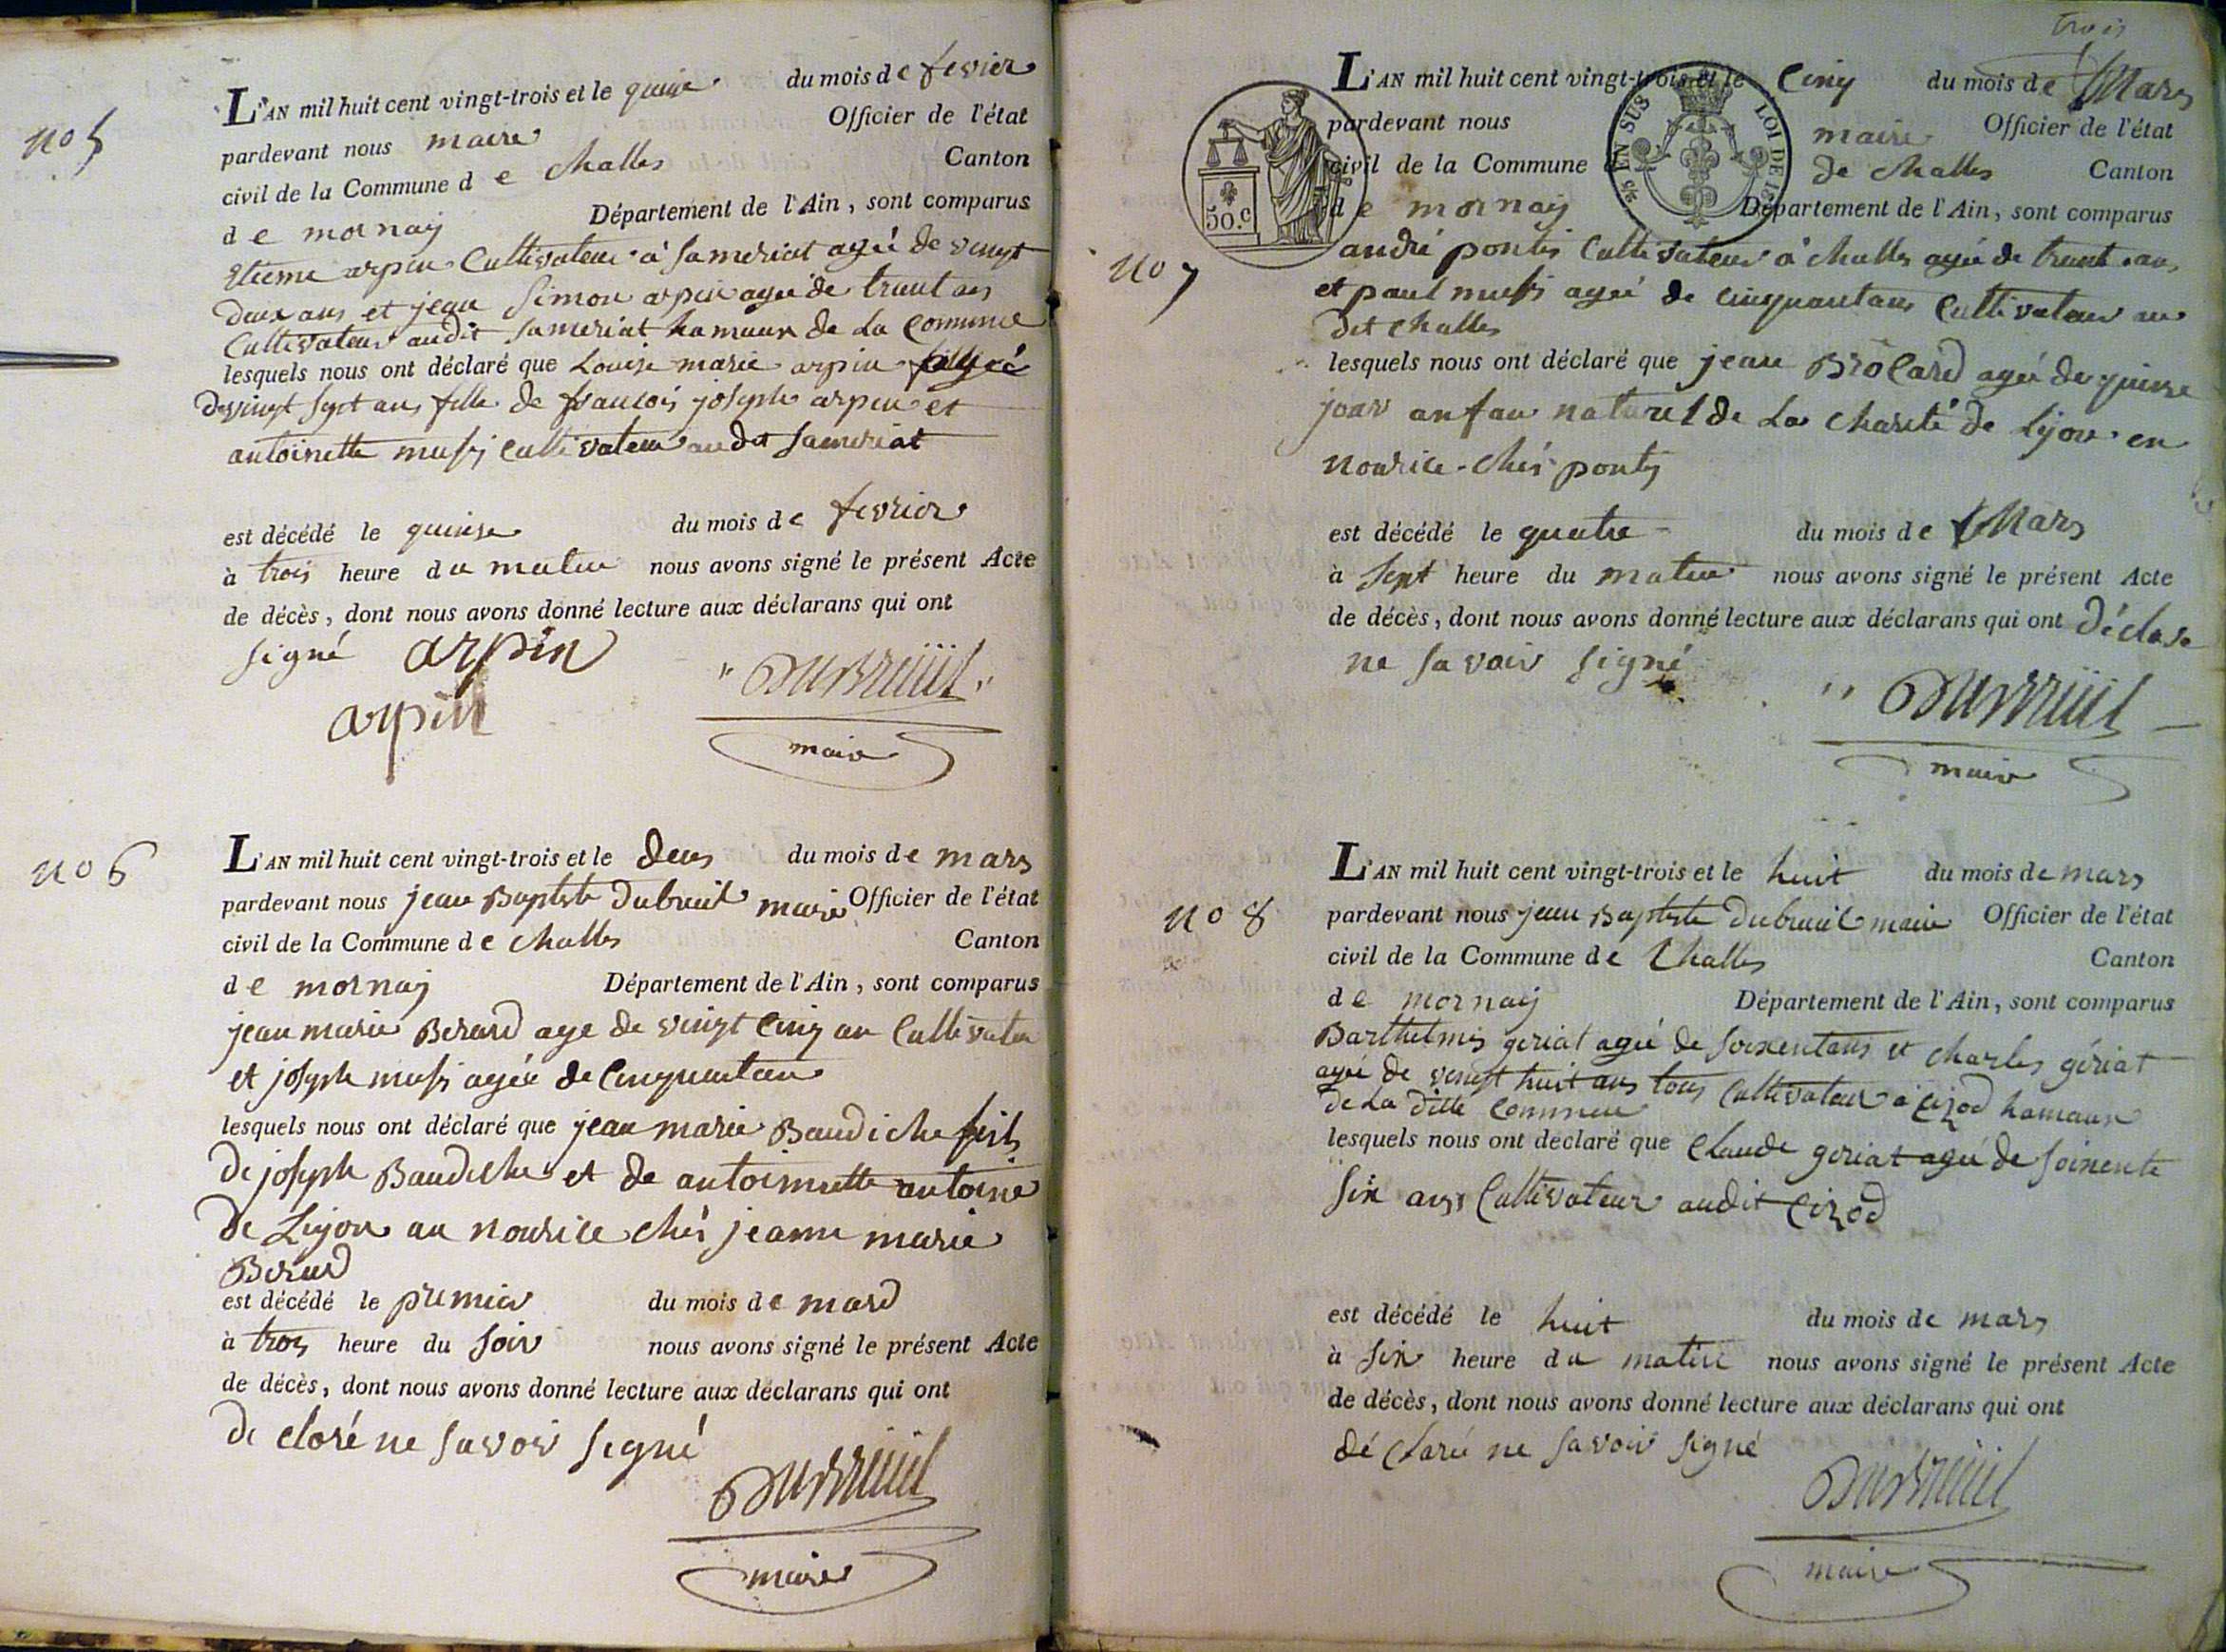 no 5
L'AN mil huit cent vingt-trois et le quise du mois de fevrier
pardevant nous maire Officier de l'état
civil de la Commune de challes Canton
de mornay Département de l'Ain, sont comparus
Etieme arpin Cultivateur a Sameriat agée de vingt
Deux ans et jean Simon arpin agée de trant ans
Cultivateur audit Sameriat hamaux de La Comune
lesquels nous ont déclaré que Louise marie arpin agée
De vingt Sept ans fille de francois joseph arpin et
antoinette mussy Cultivateur audit Sameriat
est décédé le quinse du mois de fevrier
à trois heure du matin nous avons signé le présent Acte
de décès, dont nous avons donné lecture aux déclarans qui ont
Signé arpin
arpin
Dubreüil
maire
no 6
L'AN mil huit cent vingt-trois et le Deus du mois de mars
pardevant nous jean Baptiste Dubreuil maire Officier de l'état
civil de la Commune de challes Canton
de mornay Département de l'Ain, sont comparus
jean marie Berard age de vingt Cinq an Cultivateu
et joseph mussy agée de Cinquantan
lesquels nous ont déclaré que jean marie Baudiche fils
De joseph Baudiche et de antoinnette antoine
De Liyon an nourice chés jeanne marie
Berard
est décédé le premier du mois de mard
à trois heure du Soir nous avons signé le présent Acte
de décès, dont nous avons donné lecture aux déclarans qui ont
De claré ne Savoir Segné
Dubreüil
maire
trois
L'AN mil huit cent vingt-trois et le Cinq du mois de Mars
pardevant nous maire Officier de l'état
civil de la Commune de challes Canton
de mornay Département de l'Ain, sont comparus
50.c
EN SUS
LOI DE
no 7
andré ponts Cultivateur a challes agée de trant ans
et paul mussy ageé de cinquantans Cultivateur au
Dit challes
lesquels nous ont déclaré que jean Brolard ageé de quinse
jour anfan naturel de La charité de Liyon en
nourice chés ponts
est décédé le quatre du mois de Mars
à Sept heure du matin nous avons signé le présent Acte
de décès, dont nous avons donné lecture aux déclarans qui ont Déclare
ne Savoir Signé
Dubreüil
maire
no 8
L'AN mil huit cent vingt-trois et le huit du mois de mars
pardevant nous jean Baptiste Dubreuil maire Officier de l'état
civil de la Commune de Challes Canton
de mornay Département de l'Ain, sont comparus
Barthelmis geriat ageé de Soixentans et charles gériat
ageé de vingt huit ans tous Cultivateur a Cizod hamaux
de La Ditte Commune
lesquels nous ont declaré que Claude geriat ageé de Soixente
Six ans Cultivateur audit Cizod
est décédé le huit du mois de mars
à Six heure du matin nous avons signé le présent Acte
de décès, dont nous avons donné lecture aux déclarans qui ont
dé claré ne Savoir Signé
Dubreüil
maire